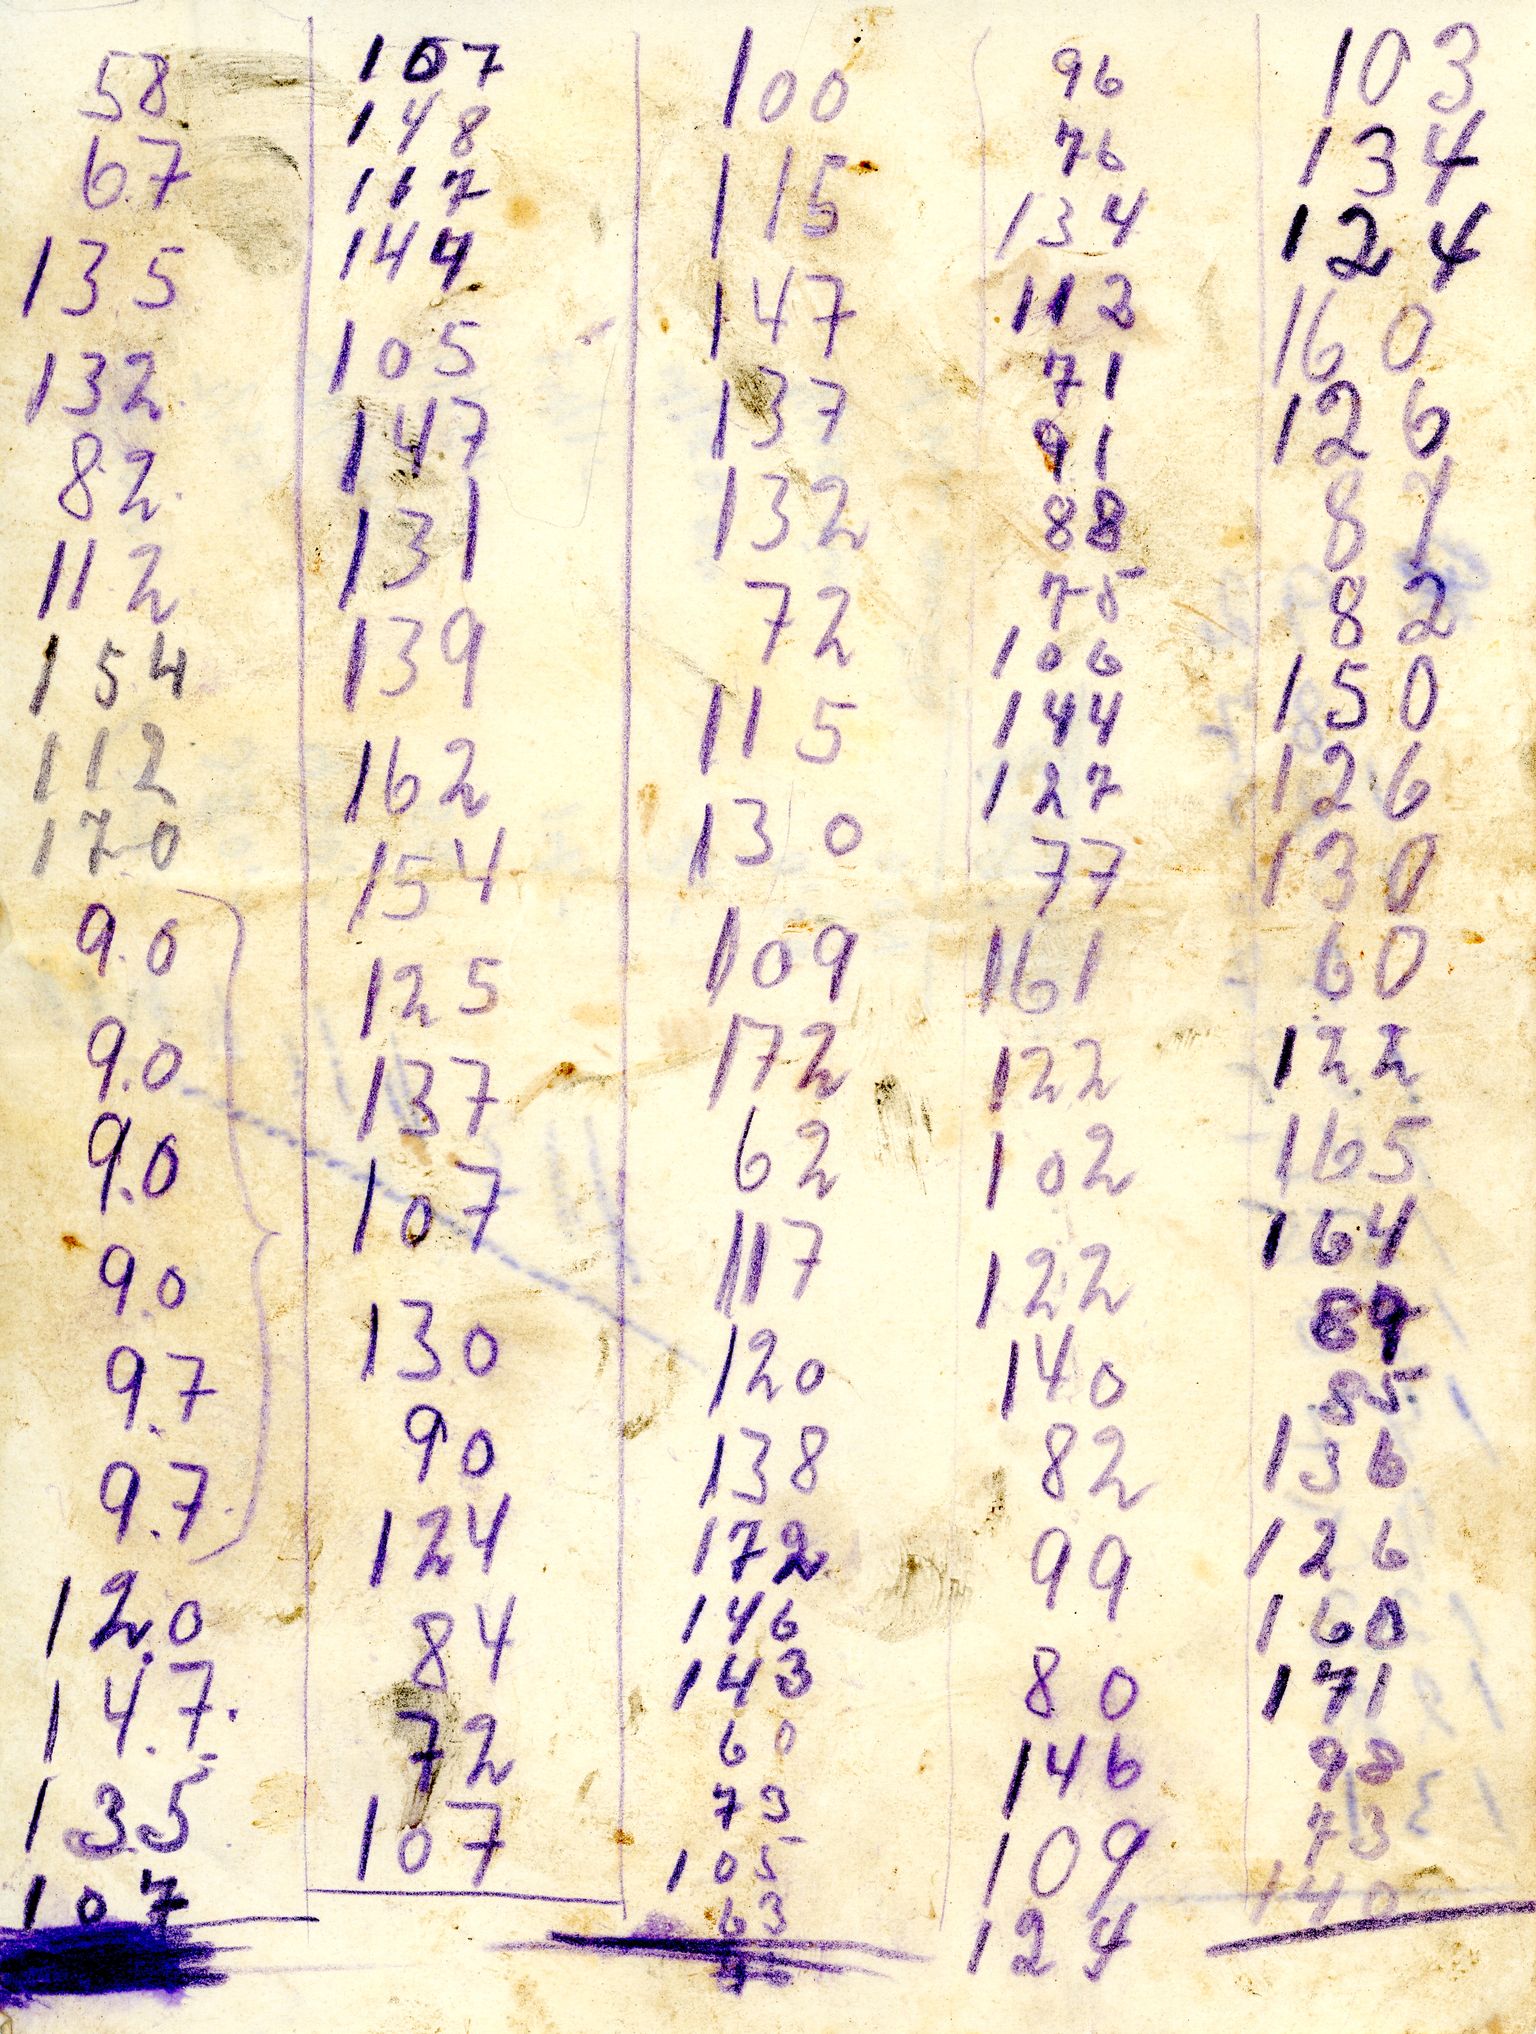 58
67
135
132
82
112
154
112
170
9.0
9.0
9.0
9.0
9.7
9.7
12.0
14.7.
13.5
107
107
148
117
144
105
147
131
139
162
154
125
137
107
130
90
124
84
72
107
100
115
147
137
132
72
115
130
109
172
62
117
120
138
172
146
143
60
73
105
63
96
76
134
112
71
91
88
75
106
144
127
77
161
122
102
122
140
82
99
80
146
109
124
103
134
124
160
126
87
82
150
126
130
60
122
165
164
89
85
136
126
160
171
98
73
140